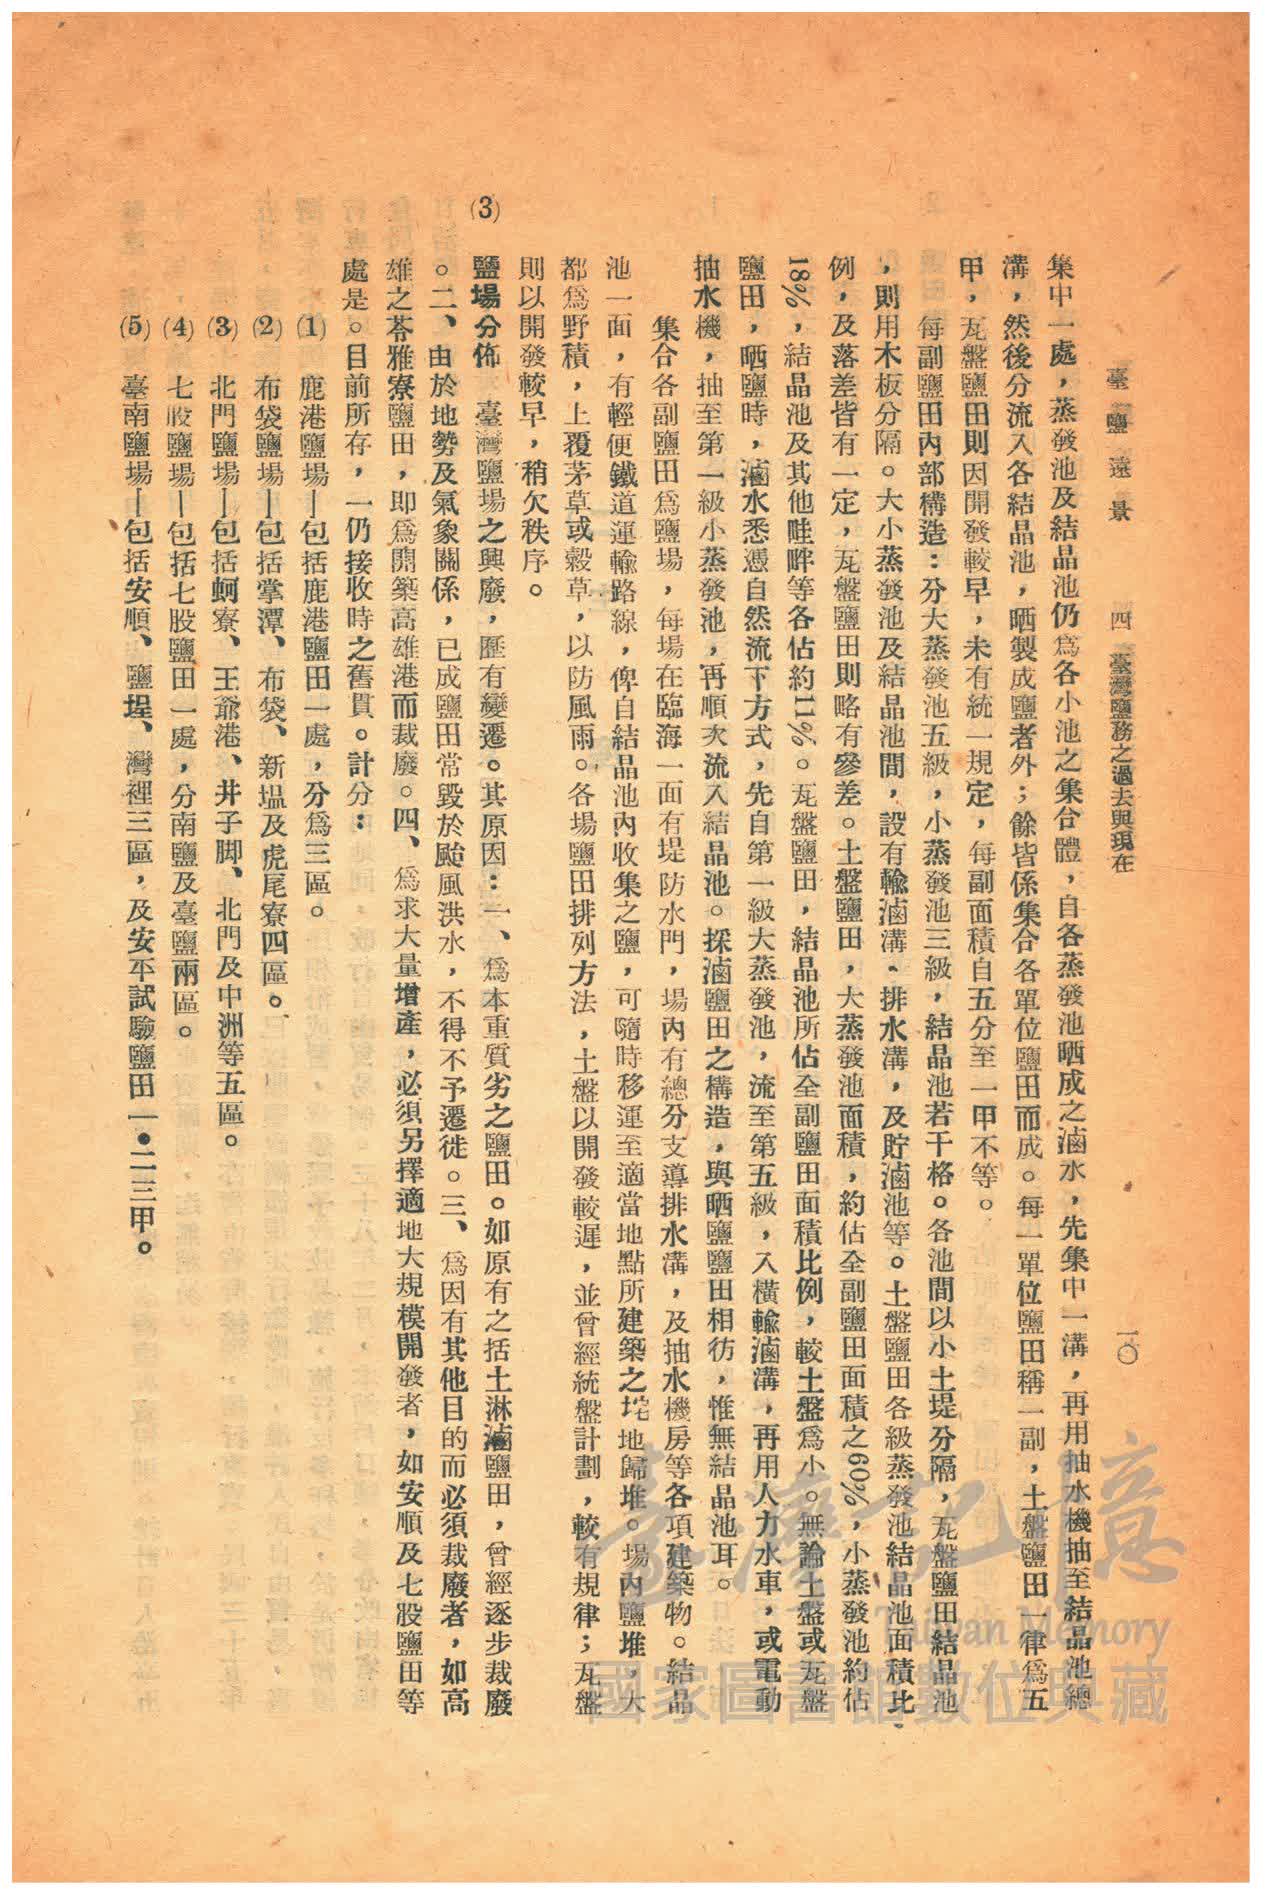 臺鹽遠景　四　臺灣鹽務之過去與現在　一〇
集中一處，蒸發池及結晶池仍爲各小池之集合體，自各蒸發池晒成之滷水，先集中一溝，再用抽水機抽至結晶池總
溝，然後分流入各結晶池，晒製成鹽者外；餘皆係集合各單位鹽田而成。每一單位鹽田稱一副，土盤鹽田一律爲五
甲，瓦盤鹽田則因開發較早，未有統一規定，每副面積自五分至一甲不等。
每副鹽田內部構造：分大蒸發池五級，小蒸發池三級，結晶池若干格。各池間以小土堤分隔，瓦盤鹽田結晶池
，則用木板分隔。大小蒸發池及結晶池間，設有輸滷溝、排水溝，及貯滷池等。土盤鹽田各級蒸發池結晶池面積比
例，及落差皆有一定，瓦盤鹽田則略有參差。土盤鹽田，大蒸發池面積，約佔全副鹽田面積之60%，小蒸發池約佔
18%，結晶池及其他畦畔等各佔約11%。瓦盤鹽田，結晶池所佔全副鹽田面積比例，較土盤爲小。無論土盤或瓦盤
鹽田，晒鹽時，滷水悉憑自然流下方式，先自第一級大蒸發池，流至第五級，入橫輸滷溝，再用人力水車，或電動
抽水機，抽至第一級小蒸發池，再順次流入結晶池。採滷鹽田之構造，與晒鹽鹽田相彷，惟無結晶池耳。
集合各副鹽田爲鹽場，每場在臨海一面有堤防水門，場內有總分支導排水溝，及抽水機房等各項建築物。結晶
池一面，有輕便鐵道運輸路線，俾自結晶池內收集之鹽，可隨時移運至適當地點所建築之坨地歸堆。場內鹽堆，大
都爲野積，上覆茅草或穀草，以防風雨。各場鹽田排列方法，土盤以開發較遲，並曾經統盤計劃，較有規律；瓦盤
則以開發較早，稍欠秩序。
(3)　鹽場分佈　臺灣鹽場之興廢，歷有變遷。其原因：一、爲本重質劣之鹽田。如原有之括土淋滷鹽田，曾經逐步裁廢
。二、由於地勢及氣象關係，已成鹽田常毀於颱風洪水，不得不予遷徙。三、爲因有其他目的而必須裁廢者，如高
雄之苓雅寮鹽田，即爲開築高雄港而裁廢。四、爲求大量增產，必須另擇適地大規模開發者，如安順及七股鹽田等
處是。目前所存，一仍接收時之舊貫。計分：
(1)　鹿港鹽場—包括鹿港鹽田一處，分爲三區。
(2)　布袋鹽場—包括掌潭、布袋、新塭及虎尾寮四區。
(3)　北門鹽場—包括蚵寮、王爺港、井子脚、北門及中洲等五區。
(4)　七股鹽場—包括七股鹽田一處，分南鹽及臺鹽兩區。
(5)　臺南鹽場—包括安順、鹽埕、灣裡三區，及安平試驗鹽田一·二三甲。
臺灣記憶
Taiwan Memory
國家圖書館數位典藏